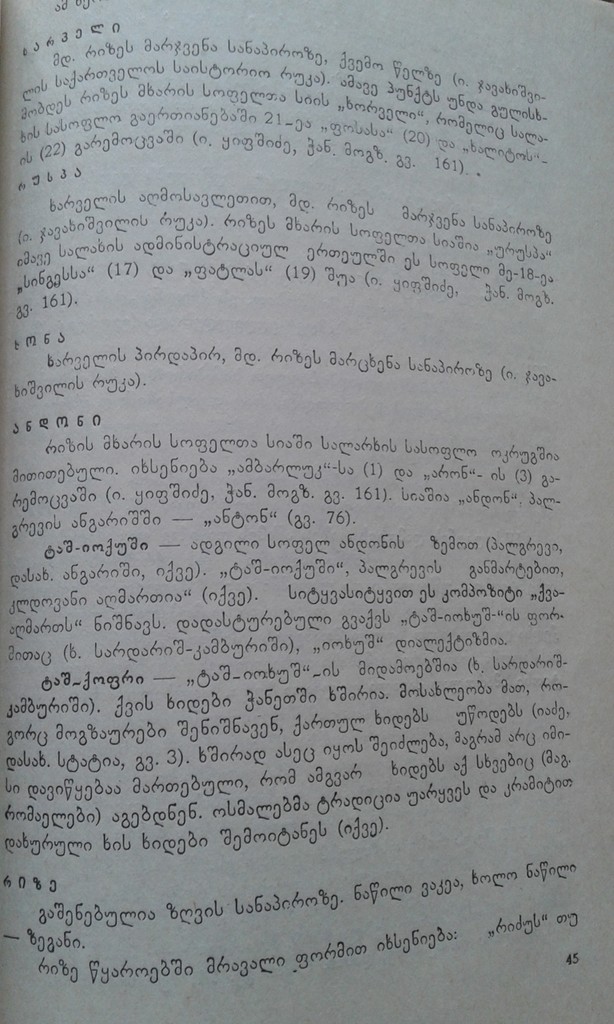 ხ ა რ ვ ე ლ ი
მდ. რიზეს მარჯვენა სანაპიროზე, ქვემო წელზე (ი. ჯავახიშვი-
ლის საქართველოს საისტორიო რუკა). ამავე პუნქტს უნდა გულისხ-
მობდეს რიზეს მხარის სოფელთა სიის „ხორველი“, რომელიც სალა-
ხის სასოფლო გაერთიანებაში 21-ეა „ფოსასა“ (20) და „ხალიტოს“-
ის (22) გარემოცვაში (ი. ყიფშიძე, ჭან. მოგზ. გვ. 161).
რ უ ს პ ა
ხარველის აღმოსავლეთით, მდ. რიზეს მარჯვენა სანაპიროზე
(ი. ჯავახიშვილის რუკა). რიზეს მხარის სოფელთა სიაშია „ურუსპა“
იმავე სალახის ადმინისტრაციულ ერთეულში ეს სოფელი მე-18-ეა
„სინგესსა“ (17) და „ფატლას“ (19) შუა (ი. ყიფშიძე, ჭან. მოგზ.
გვ. 161).
ხარველის პირდაპირ, მდ. რიზეს მარცხენა სანაპიროზე (ი. ჯავა-
ხიშვილის რუკა).
ა ნ დ ო ნ ი
რიზის მხარის სოფელთა სიაში სალარხის სასოფლო ოკრუგშია
მითითებული. იხსენიება „ამბარლუკ“-სა (1) და „არონ“- ის (3) გა-
რემოცვაში (ი. ყიფშიძე, ჭან. მოგზ. გვ. 161). სიაშია „ანდონ“, პალ-
გრევის ანგარიშში — „ანტონ“ (გვ. 76).
ტაშ-იოქუში — ადგილი სოფელ ანდონის ზემოთ (პალგრევი,
დასახ. ანგარიში, იქვე). „ტაშ-იოქუში“, პალგრევის განმარტებით,
კლდოვანი აღმართია“ (იქვე). სიტყვასიტყვით ეს კომპოზიტი „ქვა-
აღმართს“ ნიშნავს. დადასტურებული გვაქვს „ტაშ-იოხუშ-“ის ფორ-
მითაც (ხ. სარდარიშ-კამბურიში), „იოხუშ“ დიალექტიზმია.
ტაშ-ქოფრი — „ტაშ-იოხუშ“-ის მიდამოებშია (ხ. სარდარიშ-
კამბურიში). ქვის ხიდები ჭანეთში ხშირია. მოსახლეობა მათ, რო-
გორც მოგზაურები შენიშნავენ, ქართულ ხიდებს უწოდებს (იაძე,
დასახ. სტატია, გვ. 3). ხშირად ასეც იყოს შეიძლება, მაგრამ არც იმი-
სი დავიწყებაა მართებული, რომ ამგვარ ხიდებს აქ სხვებიც (მაგ.
რომაელები) აგებდნენ. ოსმალებმა ტრადიცია უარყვეს და კრამიტით
დახურული ხის ხიდები შემოიტანეს (იქვე).
რ ი ზ ე
გაშენებულია ზღვის სანაპიროზე. ნაწილი ვაკეა, ხოლო ნაწილი
— ზეგანი.
რიზე წყაროებში მრავალი ფორმით იხსენიება: „რიძუს“ თუ
45